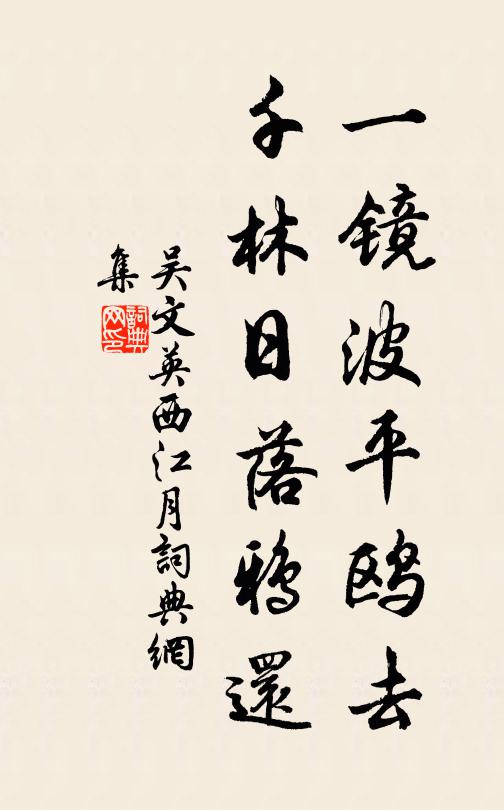 一镜波平鸥去
千林日落鸦還
吴文英西江月詞典網
集
詞典
网印